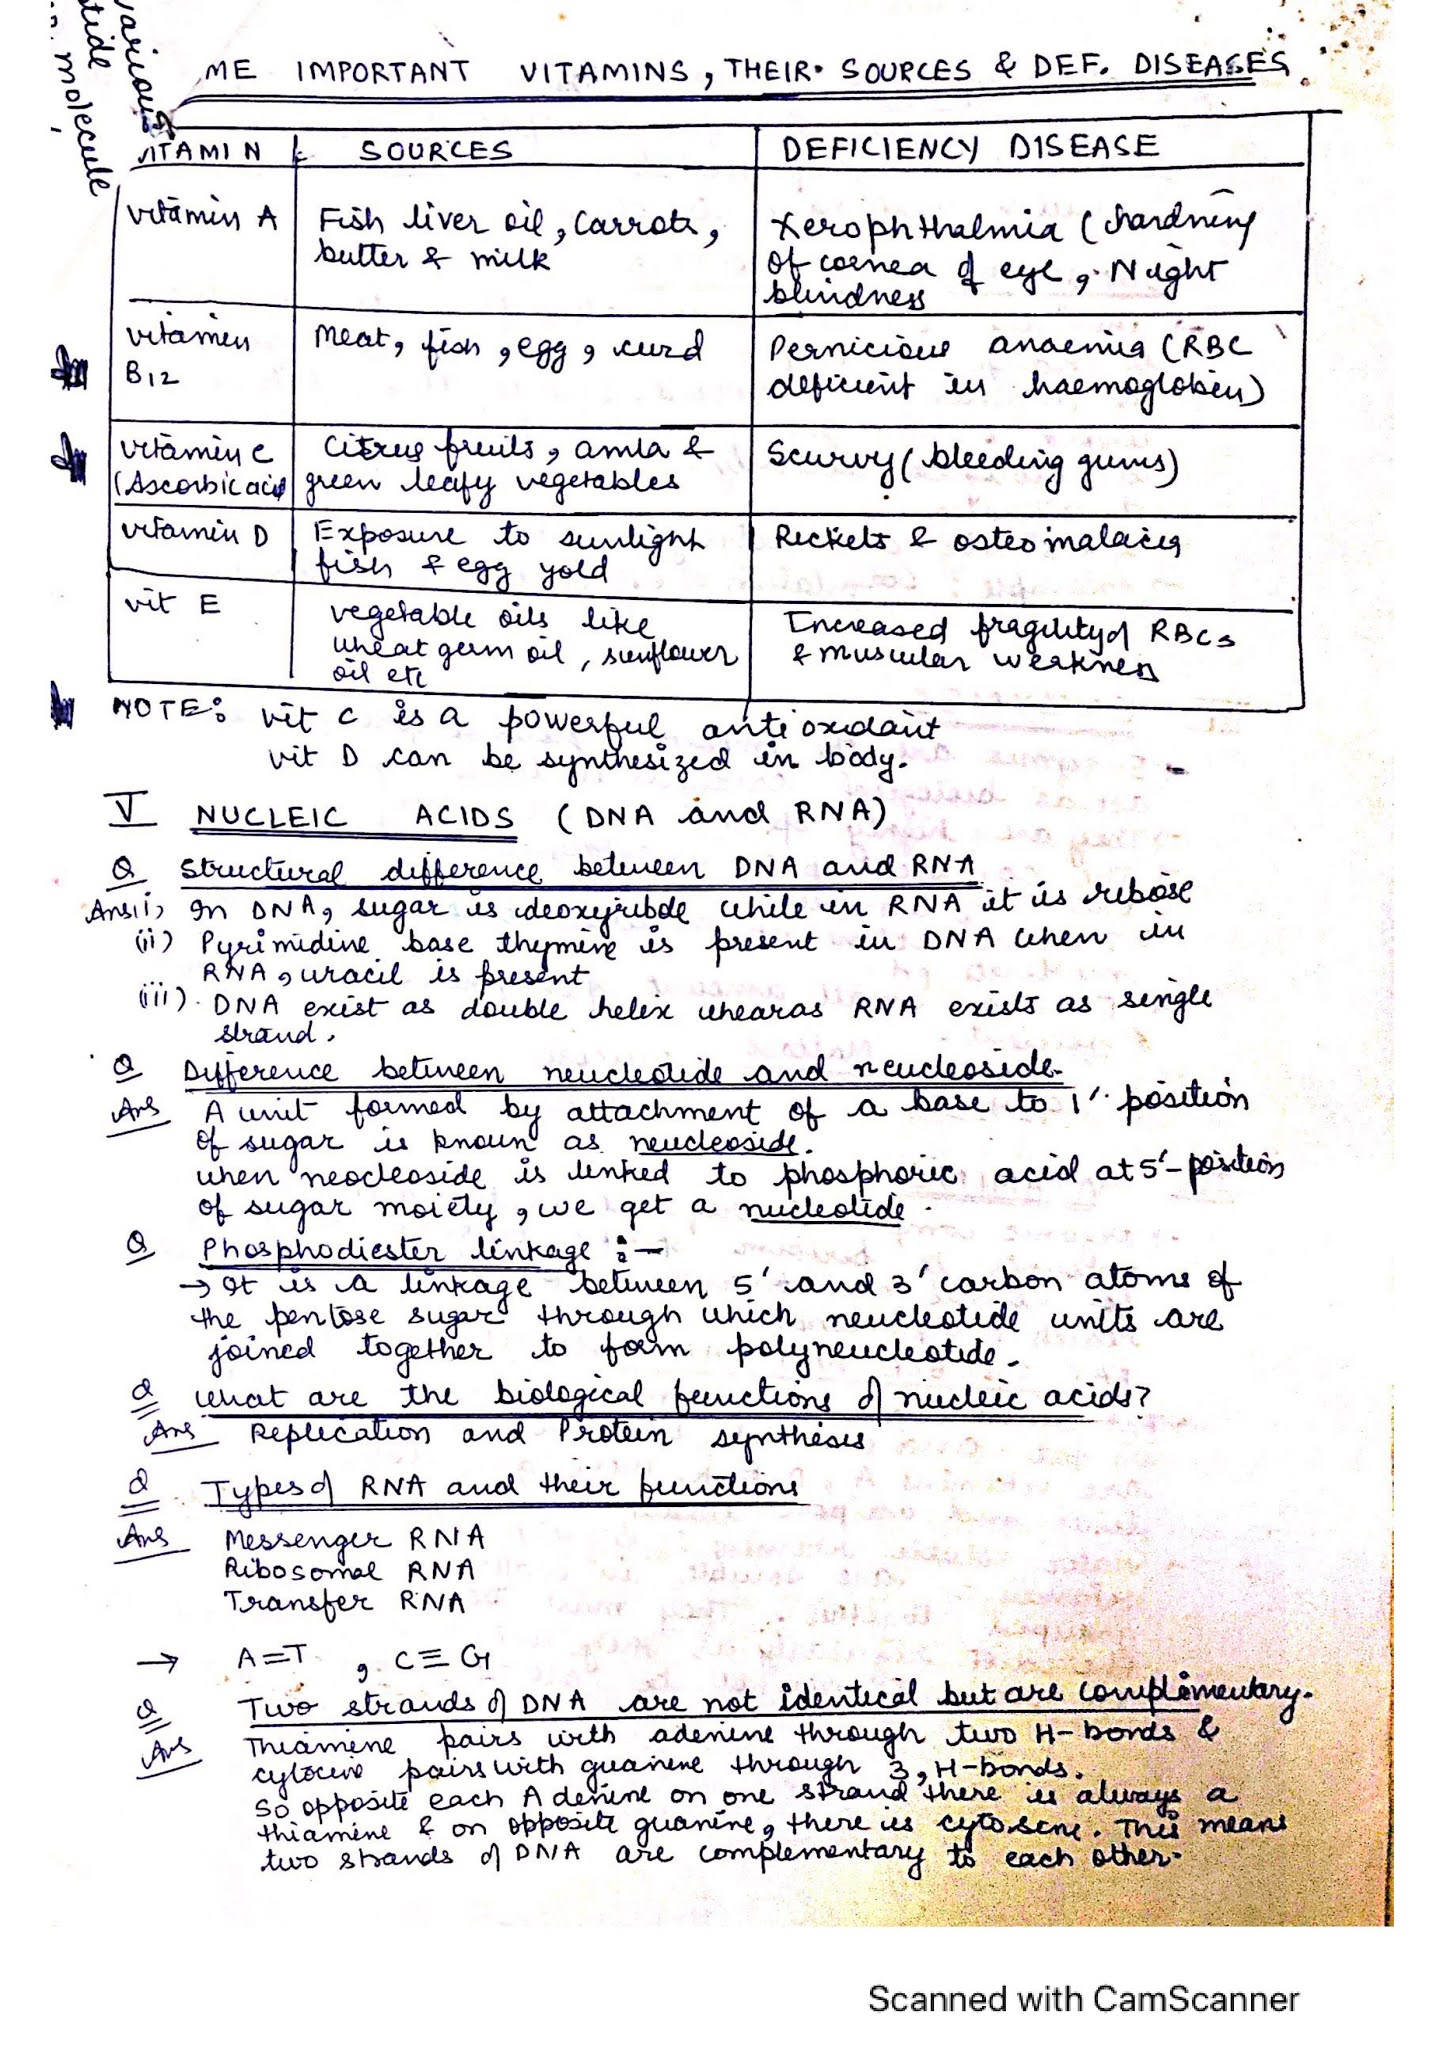 various
tide
molecule
ME IMPORTANT VITAMINS, THEIR SOURCES & DEF. DISEASES
VITAMIN SOURCES DEFICIENCY DISEASE
vitamin A
Fish liver oil, Carrots,
butter & milk
Xerophthalmia (hardning
of cornea of eye, Night
blindness
vitamin
B12
Meat, fish, egg, curd
Pernicious anaemia (RBC
deficient in haemoglobin)
vitamin C
(Ascorbic acid
Citrus fruits, amla &
green leafy vegetables
Scurvy (bleeding gums)
vitamin D
Exposure to sunlight
fish & egg yold
Rickets & osteomalacia
vit E
vegetable oils like
wheat germ oil, sunflower
oil etc
Increased fragility of RBCs
& muscular weakness
NOTE: vit C is a powerful antioxidant
vit D can be synthesized in body.
V NUCLEIC ACIDS (DNA and RNA)
Q Structural difference between DNA and RNA
Ans i) In DNA, sugar is deoxyribose while in RNA it is ribose
(ii) Pyrimidine base thymine is present in DNA when in
RNA, uracil is present
(iii). DNA exist as double helix whearas RNA exists as single
strand.
Q Difference between neucleotide and neucleoside.
Ans A unit formed by attachment of a base to 1' position
of sugar is known as neucleoside.
when neocleoside is linked to phosphoric acid at 5'-position
of sugar moiety, we get a nucleotide.
Q Phosphodiester linkage :-
→ It is a linkage between 5' and 3' carbon atoms of
the pentose sugar through which neucleotide units are
joined together to form polyneucleotide.
Q what are the biological functions of nucleic acids?
Ans Replication and Protein synthesis
Q Types of RNA and their functions
Ans Messenger RNA
Ribosomal RNA
Transfer RNA
→ A=T , C≡G
Q Two strands of DNA are not identical but are complementary.
Ans Thiamine pairs with adenine through two H-bonds &
cytocine pairs with guanine through 3, H-bonds.
So opposite each Adenine on one strand there is always a
thiamine & on opposite guanine, there is cytosine. This means
two strands of DNA are complementary to each other.
Scanned with CamScanner